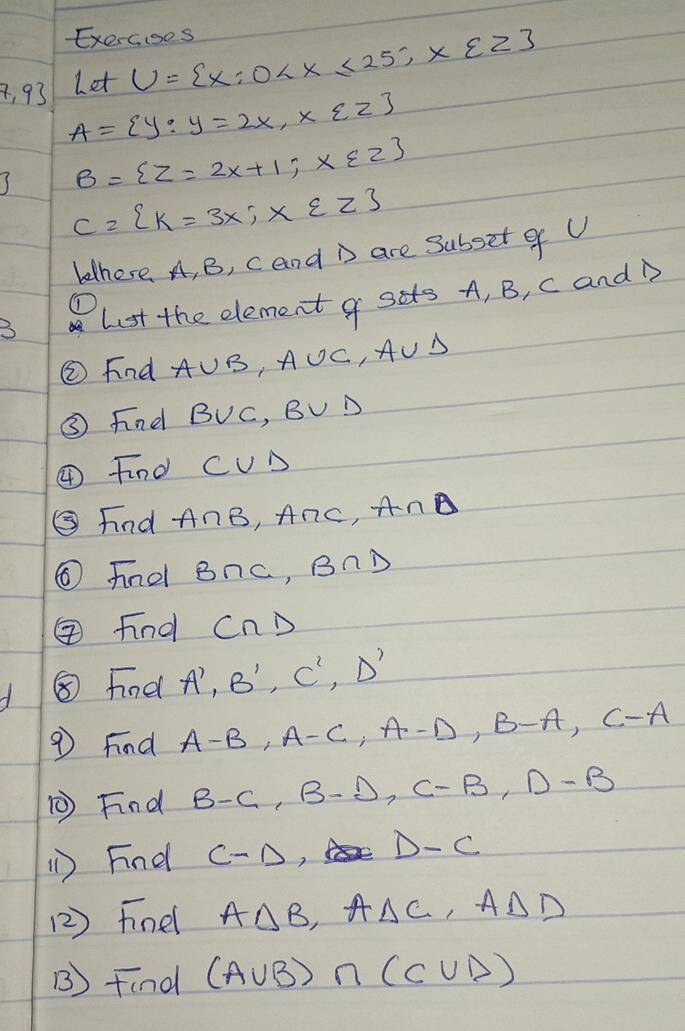 Exercises
7,9} Let U = {x: 0 < x ≤ 25; x ε Z}
A = {y: y = 2x, x ε Z}
} B = {Z = 2x+1; x ε Z}
C = {K = 3x; x ε Z}
Where A, B, C and D are Subset of U
3 ① List the element of sets A, B, C and D
② Find A∪B, A∪C, A∪D
③ Find B∪C, B∪D
④ Find C∪D
⑤ Find A∩B, A∩C, A∩D
⑥ Find B∩C, B∩D
⑦ Find C∩D
d ⑧ Find A', B', C', D'
9) Find A-B, A-C, A-D, B-A, C-A
10) Find B-C, B-D, C-B, D-B
11) Find C-D, D-C
12) Find AΔB, AΔC, AΔD
13) Find (A∪B) ∩ (C∪D)